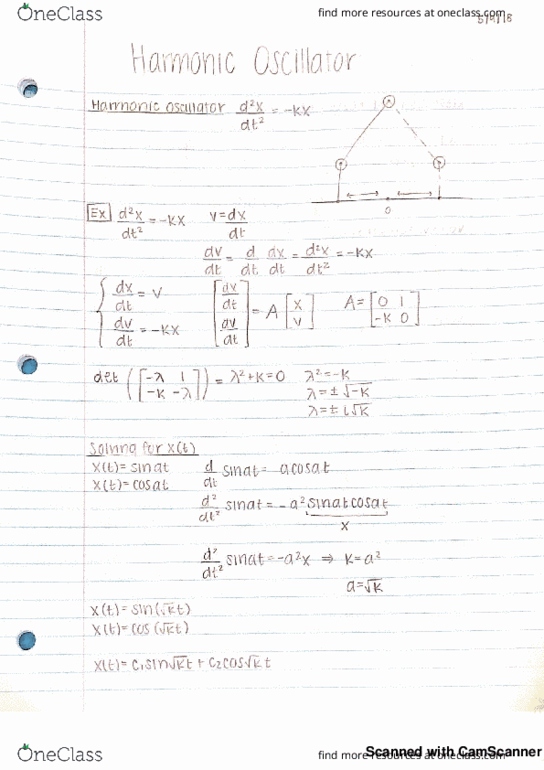 OneClass find more resources at oneclass.com
Harmonic Oscillator
Harmonic oscillator d²x/dt² = -kx
0
Ex d²x/dt² = -kx v = dx/dt
dv/dt = d/dt dx/dt = d²x/dt² = -kx
{ dx/dt = v
dv/dt = -kx
[dv/dt
dv/dt] = A [x
v] A = [0 1
-k 0]
det ([-λ 1
-k -λ]) = λ² + k = 0 λ² = -k
λ = ± √-k
λ = ± i√k
Solving for x(t)
x(t) = sinat d/dt sinat = acosat
x(t) = cosat
d²/dt² sinat = -a² sinatcosat
x
d²/dt² sinat = -a²x ⇒ k = a²
a = √k
x(t) = sin(√kt)
x(t) = cos(√kt)
x(t) = c₁sin√kt + c₂cos√kt
Scanned with CamScanner
OneClass find more resources at oneclass.com